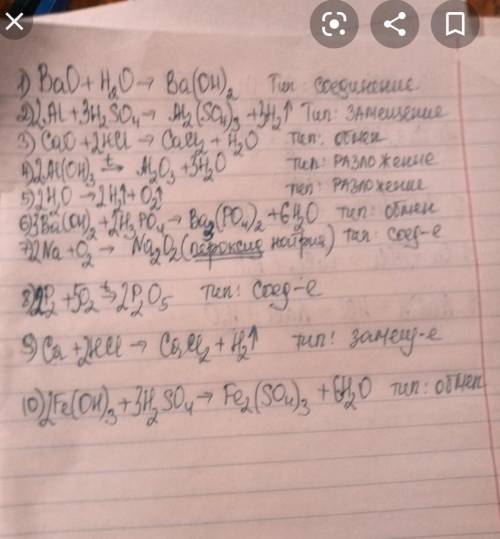 1) BaO + H₂O → Ba(OH)₂ Тип: соединение
2) 2Al + 3H₂SO₄ → Al₂(SO₄)₃ + 3H₂↑ Тип: замещение
3) CaO + 2HCl → CaCl₂ + H₂O тип: обмен
4) 2Al(OH)₃ t→ Al₂O₃ + 3H₂O тип: разложение
5) 2H₂O → 2H₂↑ + O₂↑ тип: разложение
6) 3Ba(OH)₂ + 2H₃PO₄ → Ba₃(PO₄)₂ + 6H₂O тип: обмен
7) 2Na + O₂ → Na₂O₂ (пероксид натрия) тип: соед-е
8) + 5O₂ t→ 2P₂O₅ тип: соед-е
9) Ca + 2HCl → CaCl₂ + H₂↑ тип: замещ-е
10) 2Fe(OH)₃ + 3H₂SO₄ → Fe₂(SO₄)₃ + 6H₂O тип: обмен